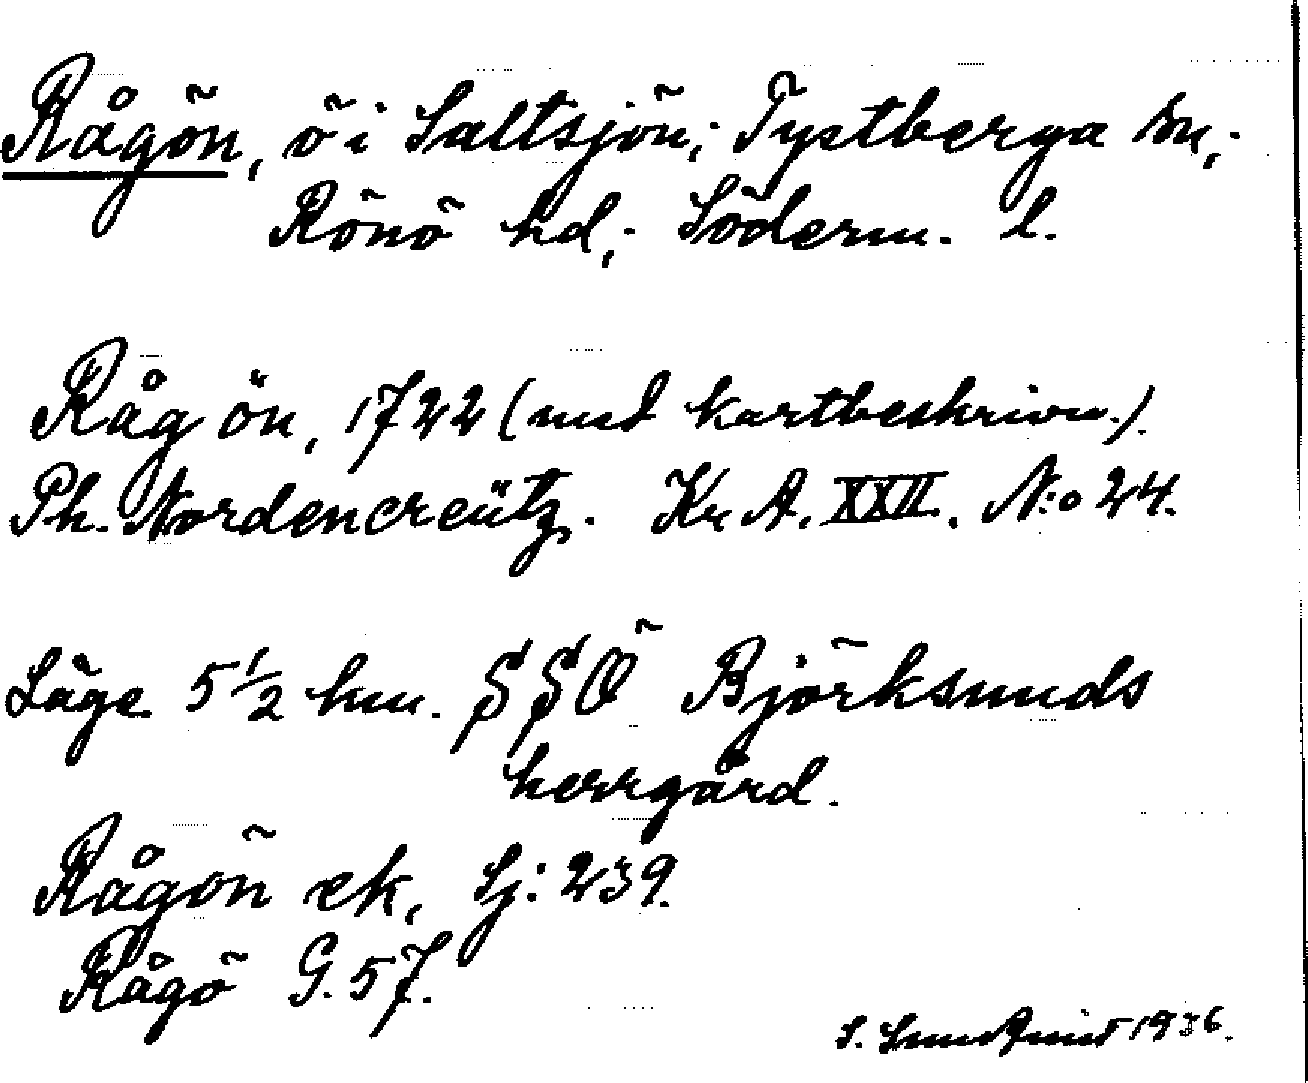 Rågön, ö i Saltsjön; Tystberga sn,
Rönö hd; Söderm. l.
Råg ön, 1722 (med kartbeskrivn.).
Ph. Nordencreütz. Kr A. XXII. N:o 24.
Läge 5 1/2 km. SSÖ Björksunds
herrgård.
Rågön ek, Sj: 239.
Rågö G. 57.
S. Sundquist 1936.